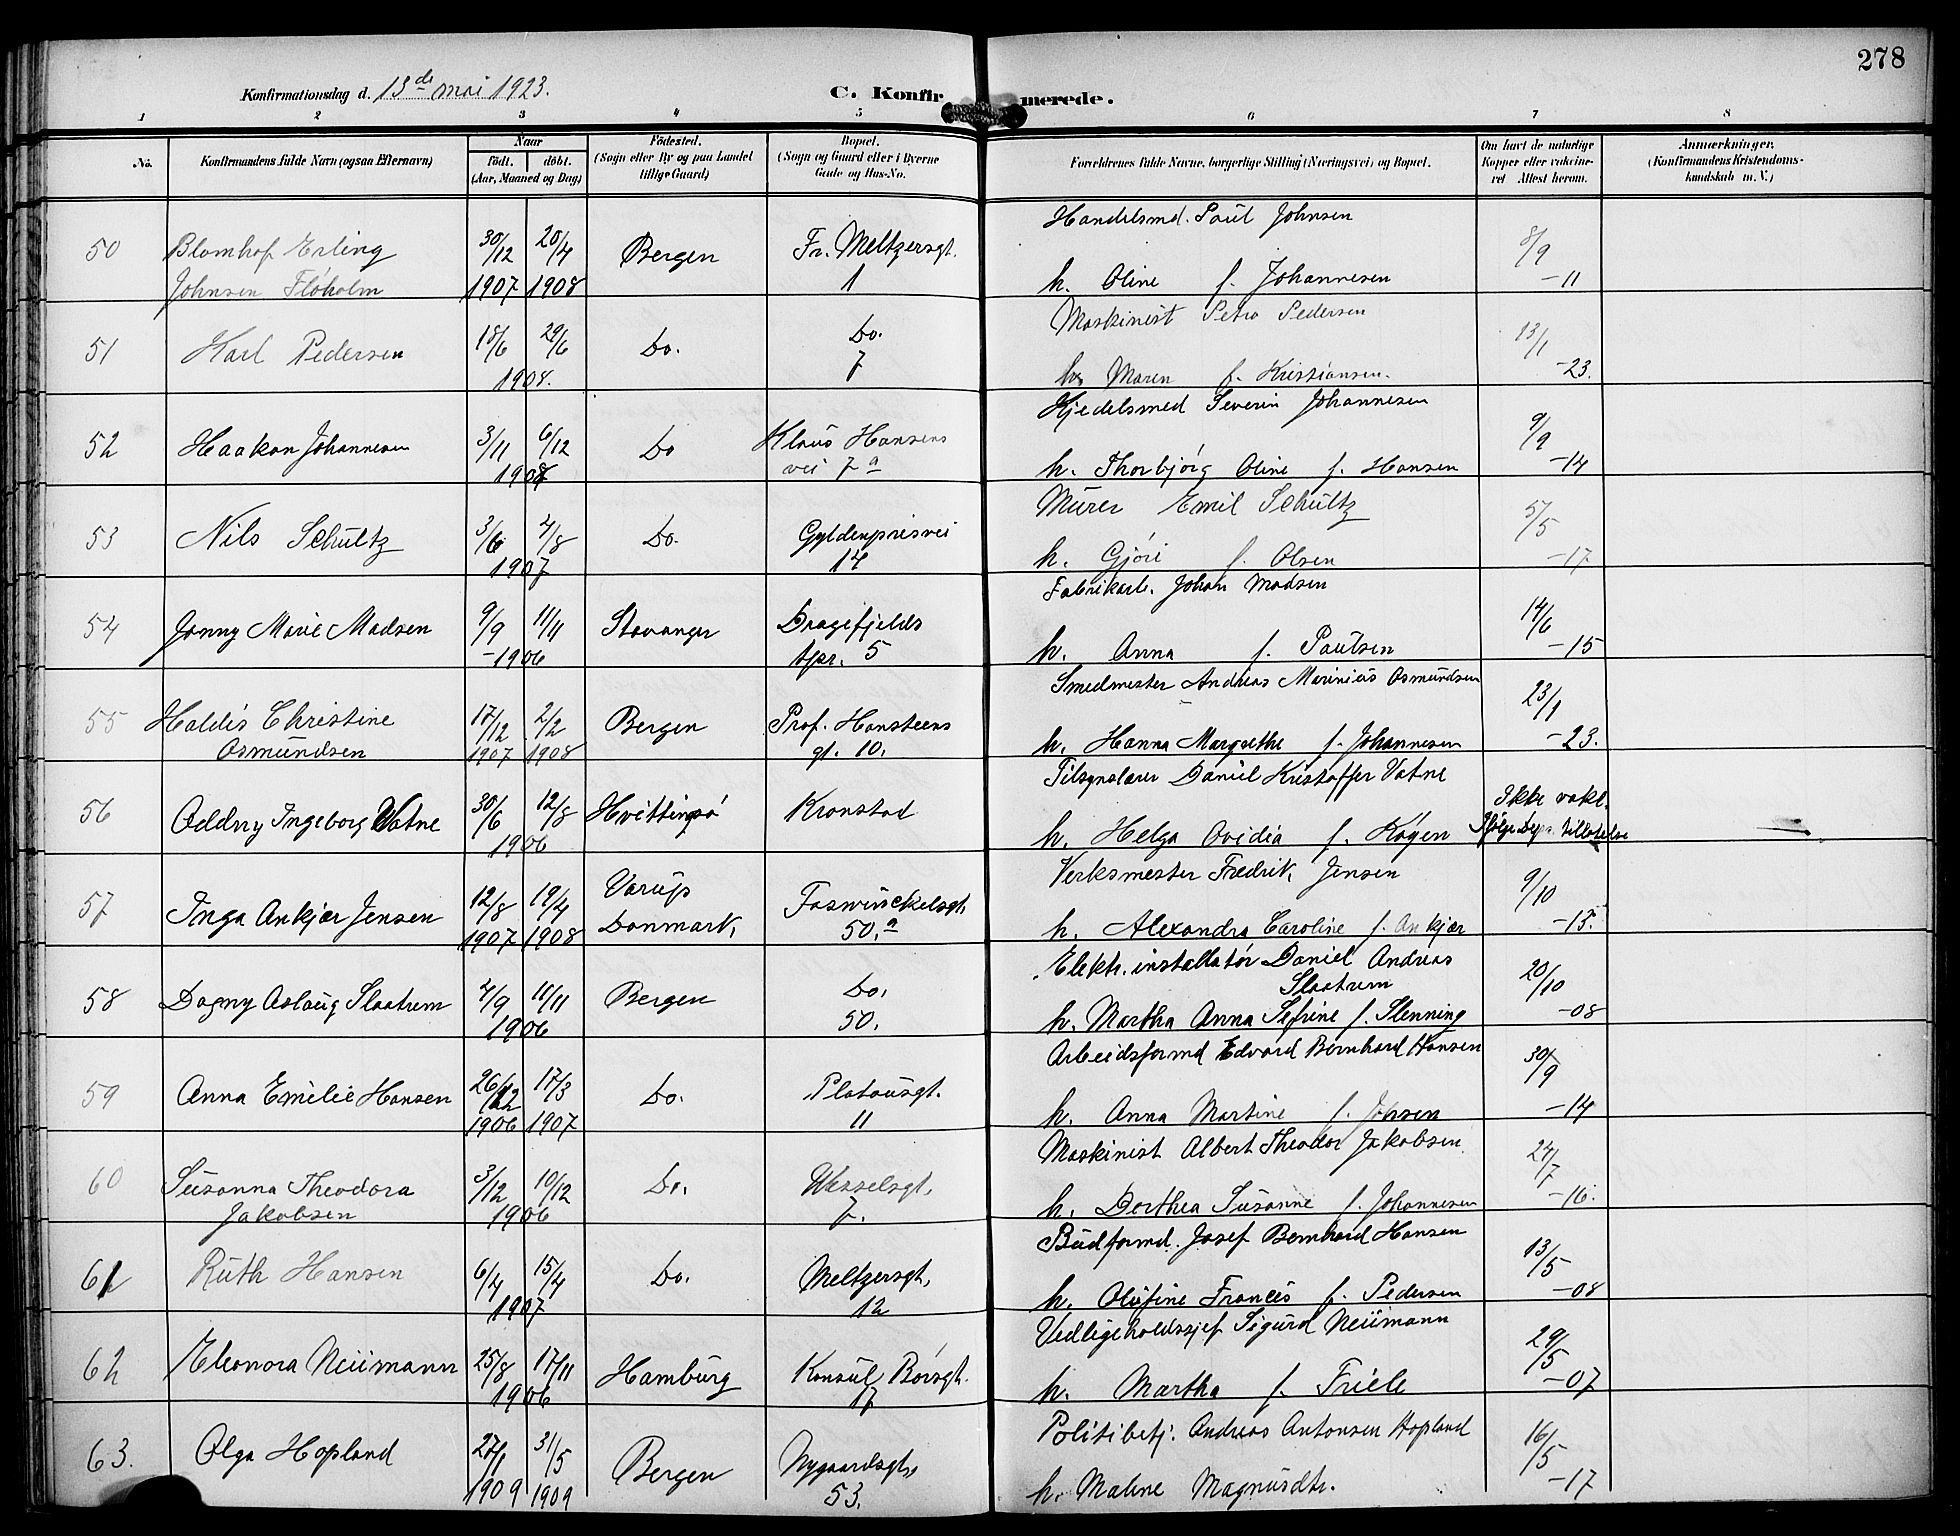 278
Konfirmationsdag d. 13de mai 1923.
C. Konfirmerede.
1 2 3 4 5 6 7 8
No. Konfirmandens fulde Navn (ogsaa Efternavn)
Naar
født. døbt.
(Aar, Maaned og Dag)
Fødested.
(Sogn eller By og paa Landet
tillige Gaard)
Bopæl.
(Sogn og Gaard eller i Byerne
Gade og Hus-No.
Forældrenes fulde Navne, borgerlige Stilling (Næringsvei) og Bopæl.
Om havt de naturlige
Kopper eller vakcine-
ret Attest herom.
Anmærkninger.
(Konfirmandens Kristendoms-
kundskab m. V.)
50 Blomhof Erling 30/12 20/4 Bergen Fr. Meltzersgt. Handelsmd. Paul Johnsen 8/9
Johnsen Fløholm 1907 1908 1 h. Oline f. Johannesen -11
51 Karl Pedersen 18/6 29/6 Do. Do. Maskinist Petro Pedersen 13/1
1908. 7 h. Maren f. Kristiansen. -23.
52 Haakon Johannesen 3/11 6/12 Do Klaus Hansens Kjedelsmed Severin Johannesen 9/9
1907 vei 7a h. Thorbjørg Oline f. Hansen -14
53 Nils Schultz 3/6 4/8 Do. Gyldenprisvei Murer Emil Schultz 5/5
1907 14 h. Gjøri f. Olsen -17
54 Jonny Marie Madsen 9/9 11/11 Stavanger Dragefjelds Fabrikarb. Johan Madsen 14/6
-1906 tpr. 5 h. Anna f. Paulsen -15
55 Haldis Christine 17/12 2/2 Bergen Prof. Hansteens Smedmester Andreas Marinius Osmundsen 23/1
Osmundsen 1907 1908 gt. 10. h. Hanna Margrethe f. Johannesen -23.
56 Oddny Ingeborg Vatne 30/6 12/8 Hvittingsø Kronstad Tilsynslærer Daniel Kristoffer Vatne Ikke vakc.
1906 h. Helga Ovidia f. Køgen Ifølge Dep. tilladelse
57 Inga Ankjær Jensen 12/8 19/4 Varup Foswinckelsgt. Verksmester Fredrik Jensen 9/10
1907 1908 Danmark. 50.a h. Alexandra Caroline f. Ankjær -15.
58 Dagny Aslaug Slaatrem 4/9 11/11 Bergen Do. Elektr. installatør Daniel Andreas 20/10
Slaatrem
1906 50. h. Martha Anna Sefrine f. Slenning -08
59 Anna Emilie Hansen 26/12 17/3 Do. Platousgt. Arbeidsformd Edvard Bernhard Hansen 30/9
1906 1907 11 h. Anna Martine f. Johsen -14
60 Susanna Theodora 3/12 10/12 Do. Wesselsgt. Maskinist Albert Theodor Jakobsen 24/7
Jakobsen 1906 7. h. Dorthea Susanne f. Johannesen -16.
61 Ruth Hansen 6/4 15/4 Do. Meltzersgt. Budformd. Josef Bernhard Hansen 13/5
1907 12 h. Olufine Francis f. Pedersen -08
62 Eleonora Neumann 25/8 17/11 Hamburg Konsul Børsgt. Vedligeholdssjef Sigurd Neumann 29/5
1906 17 h. Martha f. Friele -07
63. Olga Hopland 27/1 31/5 Bergen Nygaardsgt. Politibetj. Andreas Antonsen Hopland 16/5
1909 1909 53. h. Maline Magnusdtr. -17